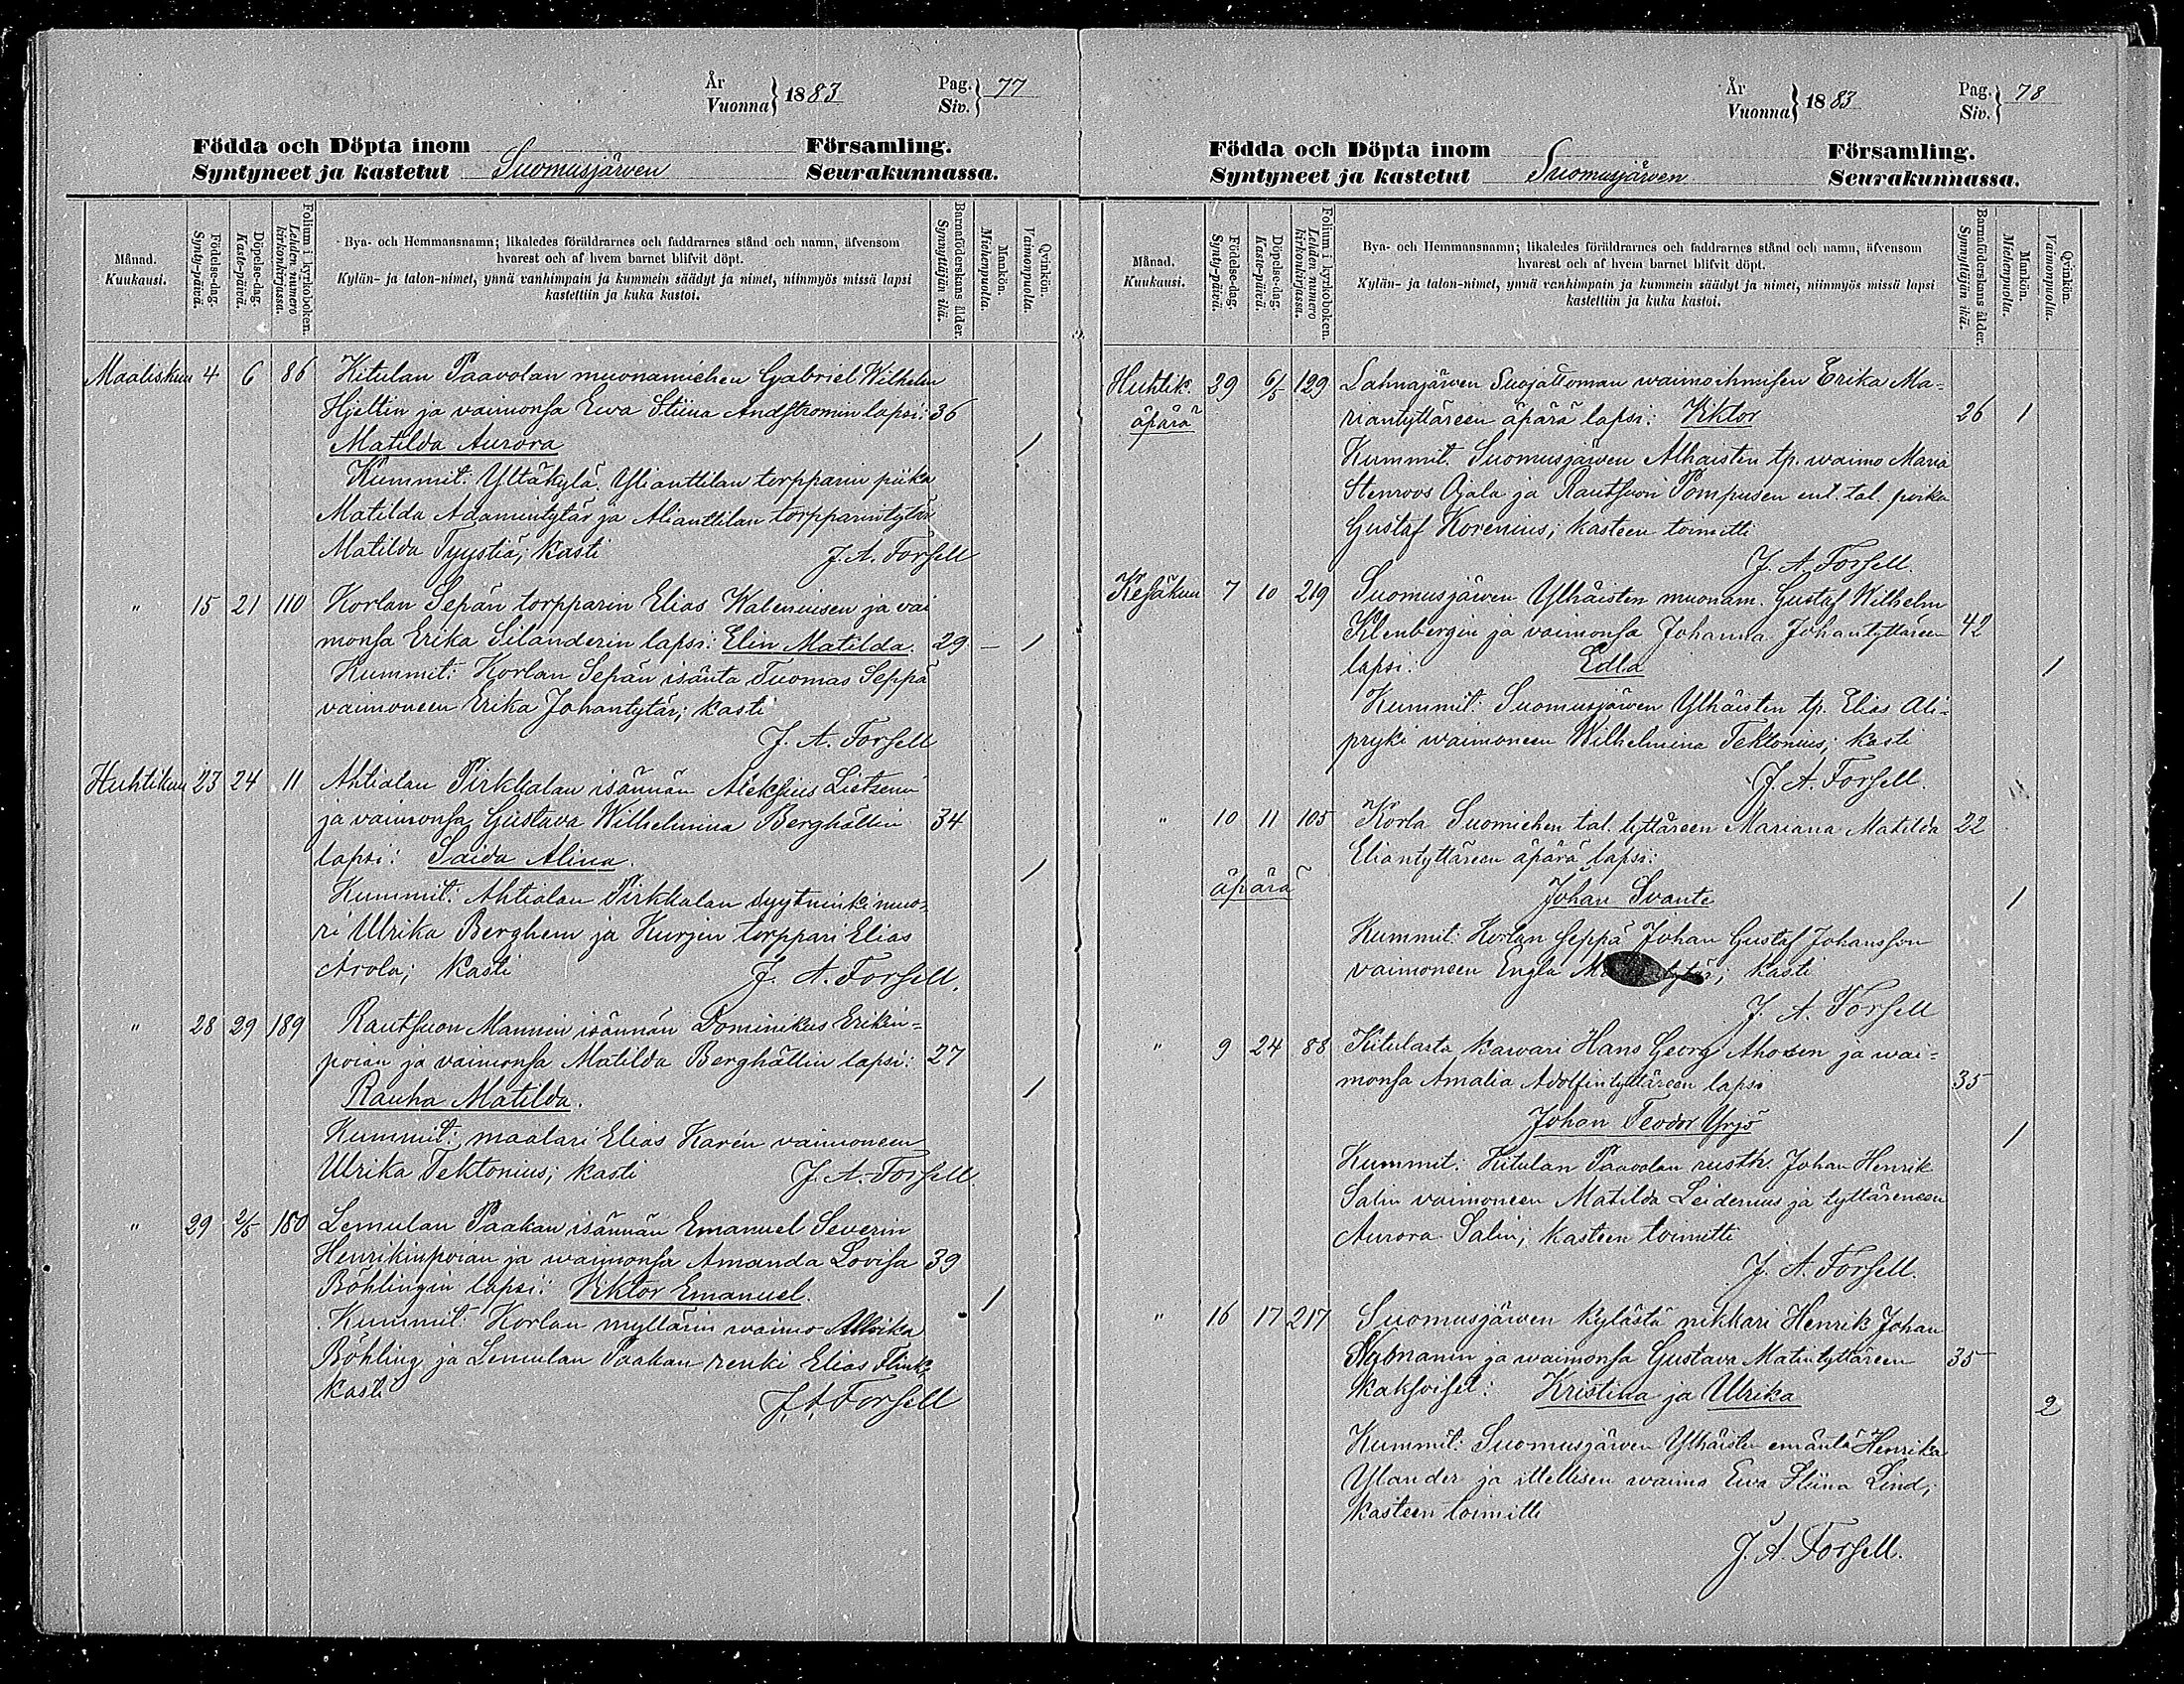 År
Vuonna } 1883
Pag.
Siv. } 77
Födda och Döpta inom Församling.
Syntyneet ja kastetut Suomusjärwen Seurakunnassa.
Månad.
Kuukausi.
Födelse-dag.
Synty-päivä.
Döpelse-dag.
Kaste-päivä.
Folium i kyrkoboken.
Lehden numero
kirkonkirjassa.
Bya- och Hemmansnamn; likaledes föräldrarnes och faddrarnes stånd och namn, äfvensom
hvarest och af hvem barnet blifvit döpt.
Kylän- ja talon-nimet, ynnä vanhimpain ja kummein säädyt ja nimet, niinmyös missä lapsi
kastettiin ja kuka kastoi.
Barnaföderskans ålder.
Synnyttäjän ikä.
Mankön.
Miehenpuolta.
Qvinkön.
Vaimonpuolta.
Maaliskuu 4 6 86 Kitulan Paavolan muonamiehen Gabriel Wilhelm
Hjeltin ja vaimonsa Ewa Stiina Andströmin lapsi: 36
Matilda Aurora 1
Kummit: Yltäkylä Ylianttilan torpparin piika
Matilda Adamintytär ja Alianttilan torpparintytär
Matilda Tyystiä; kasti J. A. Forsell
" 15 21 110 Korlan Sepän torpparin Elias Waleniusen ja vai
monsa Erika Silanderin lapsi: Elin Matilda. 29 — 1
Kummit: Korlan Sepän isäntä Tuomas Seppä
vaimoneen Erika Johantytär; kasti
J. A. Forsell
Huhtikuu 23 24 11 Ahtialan Pirkkalan isännän Aleksius Lietzenin
ja vaimonsa Gustava Wilhelmina Berghällin 34
lapsi: Saida Alina. 1
Kummit: Ahtialan Pirkkalan syytninkimuo-
ri Ulrika Berghem ja Kurjen torppari Elias
Arola; kasti J. A. Forsell.
" 28 29 189 Rautsuon Mannin isännän Dominikus Erikin-
poian ja vaimonsa Matilda Berghällin lapsi: 27
Rauha Matilda. 1
Kummit: maalari Elias Karén vaimoneen
Ulrika Tektonius; kasti J. A. Forsell.
" 29 2/5 180 Lemulan Paakan isännän Emanuel Severin
Henrikinpoian ja waimonsa Amanda Lovisa 39
Böhlingin lapsi: Viktor Emanuel. 1
Kummit: Korlan myllärin waimo Ulrika
Böhling ja Lemulan Paakan renki Elias Flink;
kasti J. A. Forsell
År
Vuonna } 1883
Pag.
Siv. } 78
Födda och Döpta inom Församling.
Syntyneet ja kastetut Suomusjärwen Seurakunnassa.
Månad.
Kuukausi.
Födelse-dag.
Synty-päivä.
Döpelse-dag.
Kaste-päivä.
Folium i kyrkoboken.
Lehden numero
kirkonkirjassa.
Bya- och Hemmansnamn; likaledes föräldrarnes och faddrarnes stånd och namn, äfvensom
hvarest och af hvem barnet blifvit döpt.
Kylän- ja talon-nimet, ynnä vanhimpain ja kummein säädyt ja nimet, niinmyös missä lapsi
kastettiin ja kuka kastoi.
Barnaföderskans ålder.
Synnyttäjän ikä.
Mankön.
Miehenpuolta.
Qvinkön.
Vaimonpuolta.
Huhtik. 6/5 129 Lahnajärwen Suojattoman waimoihmisen Erika Ma-
äpärä riantyttäreen äpärä lapsi: Viktor 26 1
Kummit. Suomusjärwen Alhaisten tp. waimo Maria
Stenroos Ojala ja Rautsuon Pompusen ent. tal. poika
Gustaf Korenius; kasteen toimitti
J. A. Forsell.
Kesäkuu 7 10 219 Suomusjärwen Ylhäisten muonam. Gustaf Wilhelm
Klenbergin ja vaimonsa Johanna Johantyttäreen 42
lapsi: Edla 1
Kummit: Suomusjärwen Ylhäisten tp. Elias Ali-
pryki waimoneen Wilhelmina Tektonius; kasti
J. A. Forsell.
" 10 11 105 Korla Suomiehen tal. tyttäreen Mariana Matilda 22
Eliantyttäreen äpärä lapsi:
äpärä Johan Svante 1
Kummit: Korlan seppä Johan Gustaf Johansson
vaimoneen Engla kasti
J. A. Forsell
" 9 24 88 Kitulasta karvari Hans Georg Ahosen ja wai-
monsa Amalia Adolfintyttäreen lapsi 35
Johan Teodor Yrjö 1
Kummit: Kitulan Paavolan rusth. Johan Henrik
Salin vaimoneen Matilda Leidenius ja tyttäreneen
Aurora Salin; kasteen toimitti
J. A. Forsell.
" 16 17 217 Suomusjärwen kylästä nikkari Henrik Johan
Nymanin ja waimonsa Gustava Matintyttäreen 35
kaksoiset: Kristina ja Ulrika 2
Kummit: Suomusjärwen Ylhäisten emäntä Henrika
Ylander ja itellisen waimo Ewa Stiina Lind;
kasteen toimitti
J. A. Forsell.